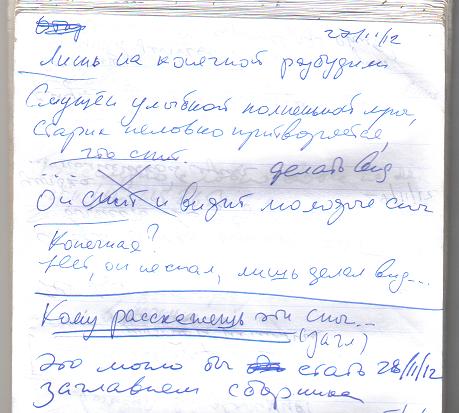 27/11/12
Лишь на конечной разбудим
Смущён улыбкой полненькой
Старик неловко притворяется,
что спит.
... делать вид
Он спит и видит молодые сны
Конечная?
Нет, он не спал, лишь делал вид...
Кому расскажешь эти сны...
(загл)
Это могло бы стать 28/11/12
заглавием сборника